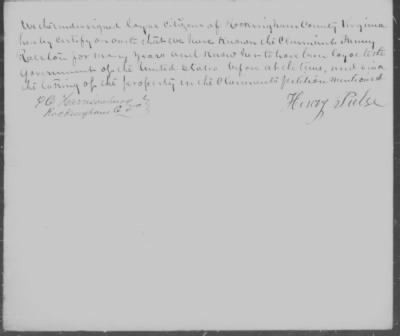 We the undersigned loyal Citizens of Rockingham County Virginia
hereby certify on oath that we have known the Claimant Fanny
Ralston for many years and know her to have been loyal to the
Government of the United States before at the time, and since
the taking of the property in the Claimants petition mentioned
P.O. Harrisonburg
Rockingham Co Va
Henry Pulse